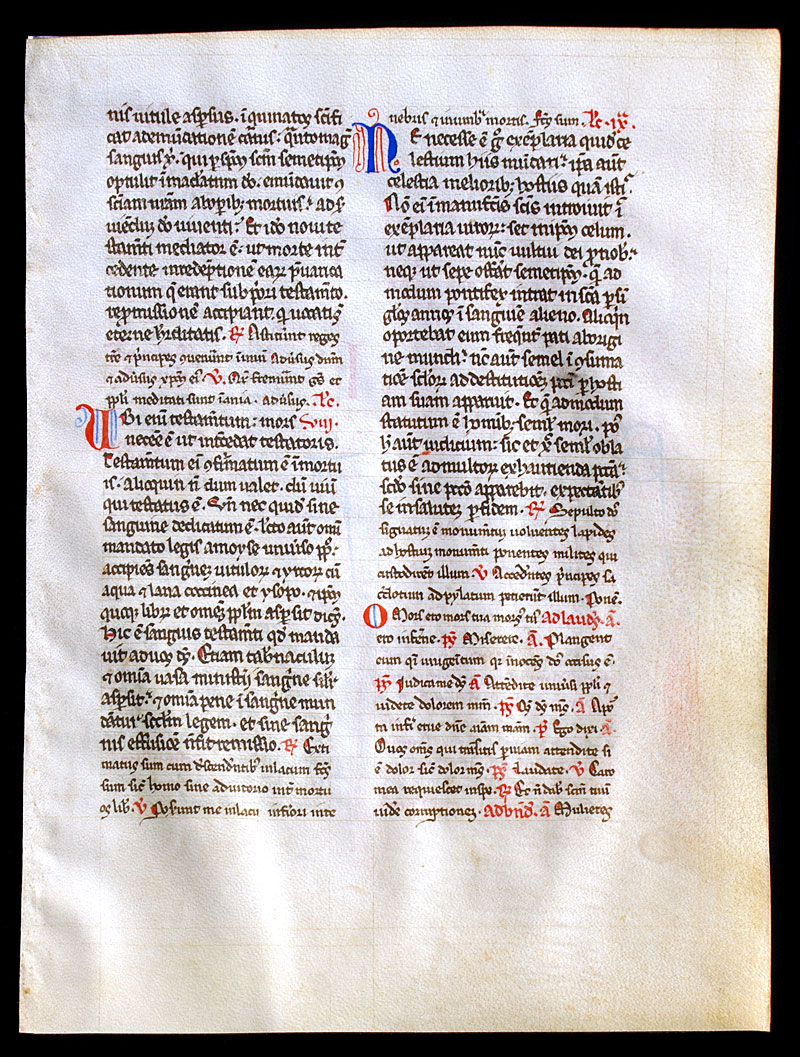 nis uitule aspersus. iquinatos scifi
cat ad emūdationē carnis. quāto mag
sanguis x̄. qui p spm scm semetipm
optulit īmaclatum do. emūdauit
sciam nram ab opib; mortuis. ad s
uiendū do uiuenti. Et ido noui te
stamti mediator ē. ut morte int
cedente in redeptionē earū puarica
tionum q erant sub priori testamto.
repromissionē accipiant. q uocati s
eterne hereditatis. R Astiterunt reges
tre et principes uenerunt in unū aduersus dnm
et aduersus xpm ei. V. Qre fremuerunt gēs et
ppli meditati sunt inania. aduersus. Lc.
Ubi eni testamtum: mors viij.
necesse ē ut intercedat testatoris.
Testamtum eī ꝯfirmatum ē ī mortu
is. Alioquin n̄ dum ualet. dū uiuit
qui testatus ē. Vn nec quidē sine
sanguine dedicatum ē. Lecto aut omi
mandato legis a moyse uniuerso pplo:
accipiens sanguinē uitulor et yrcor cū
aqua et lana coccinea et ysopo. et ipm
quoq; librum et omem pplm aspersit dicēs.
Hic ē sanguis testamti qd manda
uit ad uos ds. Etiam tabnaculum
et omia uasa ministerij sanguine sili
aspersit. et omia pene ī sanguine mun
dātur scdm legem. et sine sang
nis effusione n̄ fit remissio. R Esti
matus sum cum descendentib; in lacum fcs
sum sic homo sine adiutorio int mortu
os lib. V Posuerunt me in lacu inferiori in te
nebris et in umbra mortis. fcs sum. Lc. ix.
Necesse ē g exemplaria quidē ce
lestium hiis mundari. ipa aut
celestia meliorib; hostiis quam istis.
Nō eī ī manufactis scis introiuit ī
exemplaria uerorum: set in ipm celum.
ut appareat nūc uultui dei p nobis.
neq; ut sepe offerat semetipm. q ad
modum pontifex intrat in sca p si
glos annos ī sanguine alieno. Alioqn
oportebat eum frequent pati ab origi
ne mundi. nc aut semel ī ꝯsuma
tione sclor ad destitutionē pcti p hosti
am suam apparuit. Et q ad modum
statutum ē homib; semel mori. post
h aut iudicium: sic et x̄ semel obla
tus ē ad multor exhaurienda pcta.
scdo sine pcto apparebit. expectantib;
se in salutem p fidem. R Sepulto dno
signatum ē monumtum uoluentes lapidem
ad hostium monumti ponentes milites qui
custodirent illum. V Accedentes principes sa
cerdotum ad pylatum petierunt illum. Ponē.
O mors ero mors tua morsus tuus ad laudes. a.
ero inferne. ps Miserere. A. Plangent
eum qi unigenitum qr inocens dns occisus ē.
ps Iudica me ds A Attendite uniuersi ppli et
uidete dolorem meum. ps Ds ds ms. A A por
ta inferi erue dne aiam meam. p Ego dixi. A.
O uos oms qui transitis p uiam attendite si
ē dolor sic dolor ms. ps Laudate. V Caro
mea requiescet in spe. R Et n̄ dabis scm tuū
uidere corruptionem. ad bnd. A Mulieres